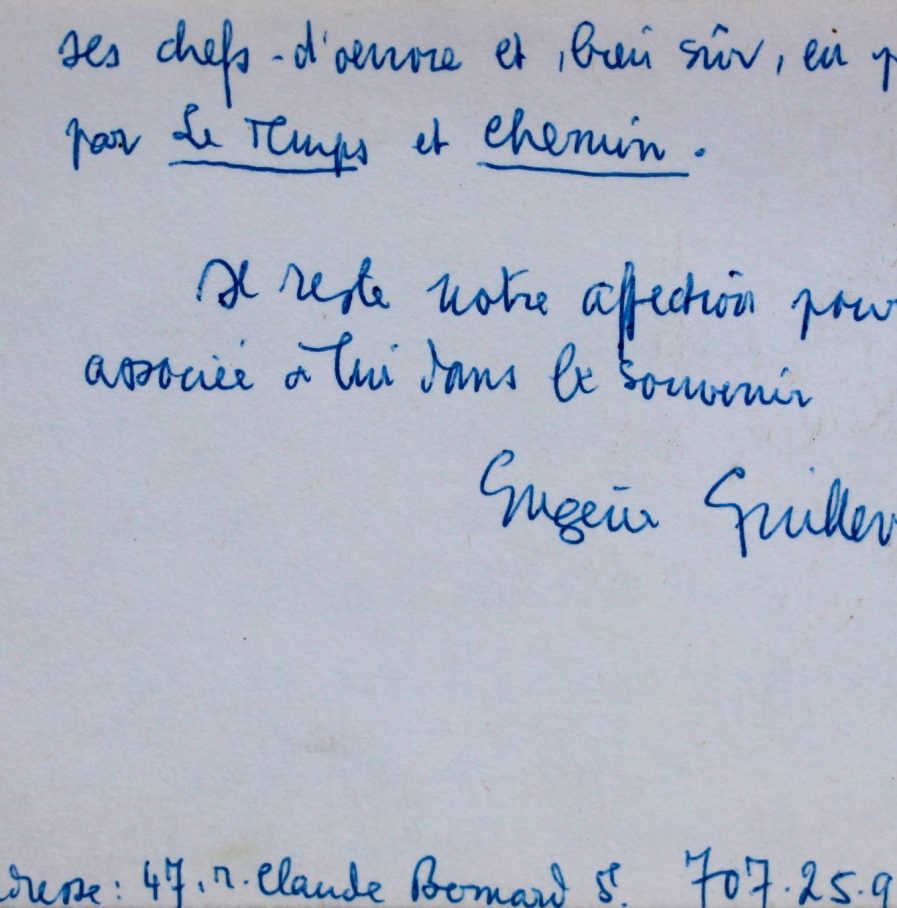 ses chefs-d'œuvre et, bien sûr, en p
par Le Temps et Chemin.
Il reste notre affection pour
associée à lui dans le souvenir
Guillev
dresse: 47, r. Claude Bernard 5e. 707.25.9